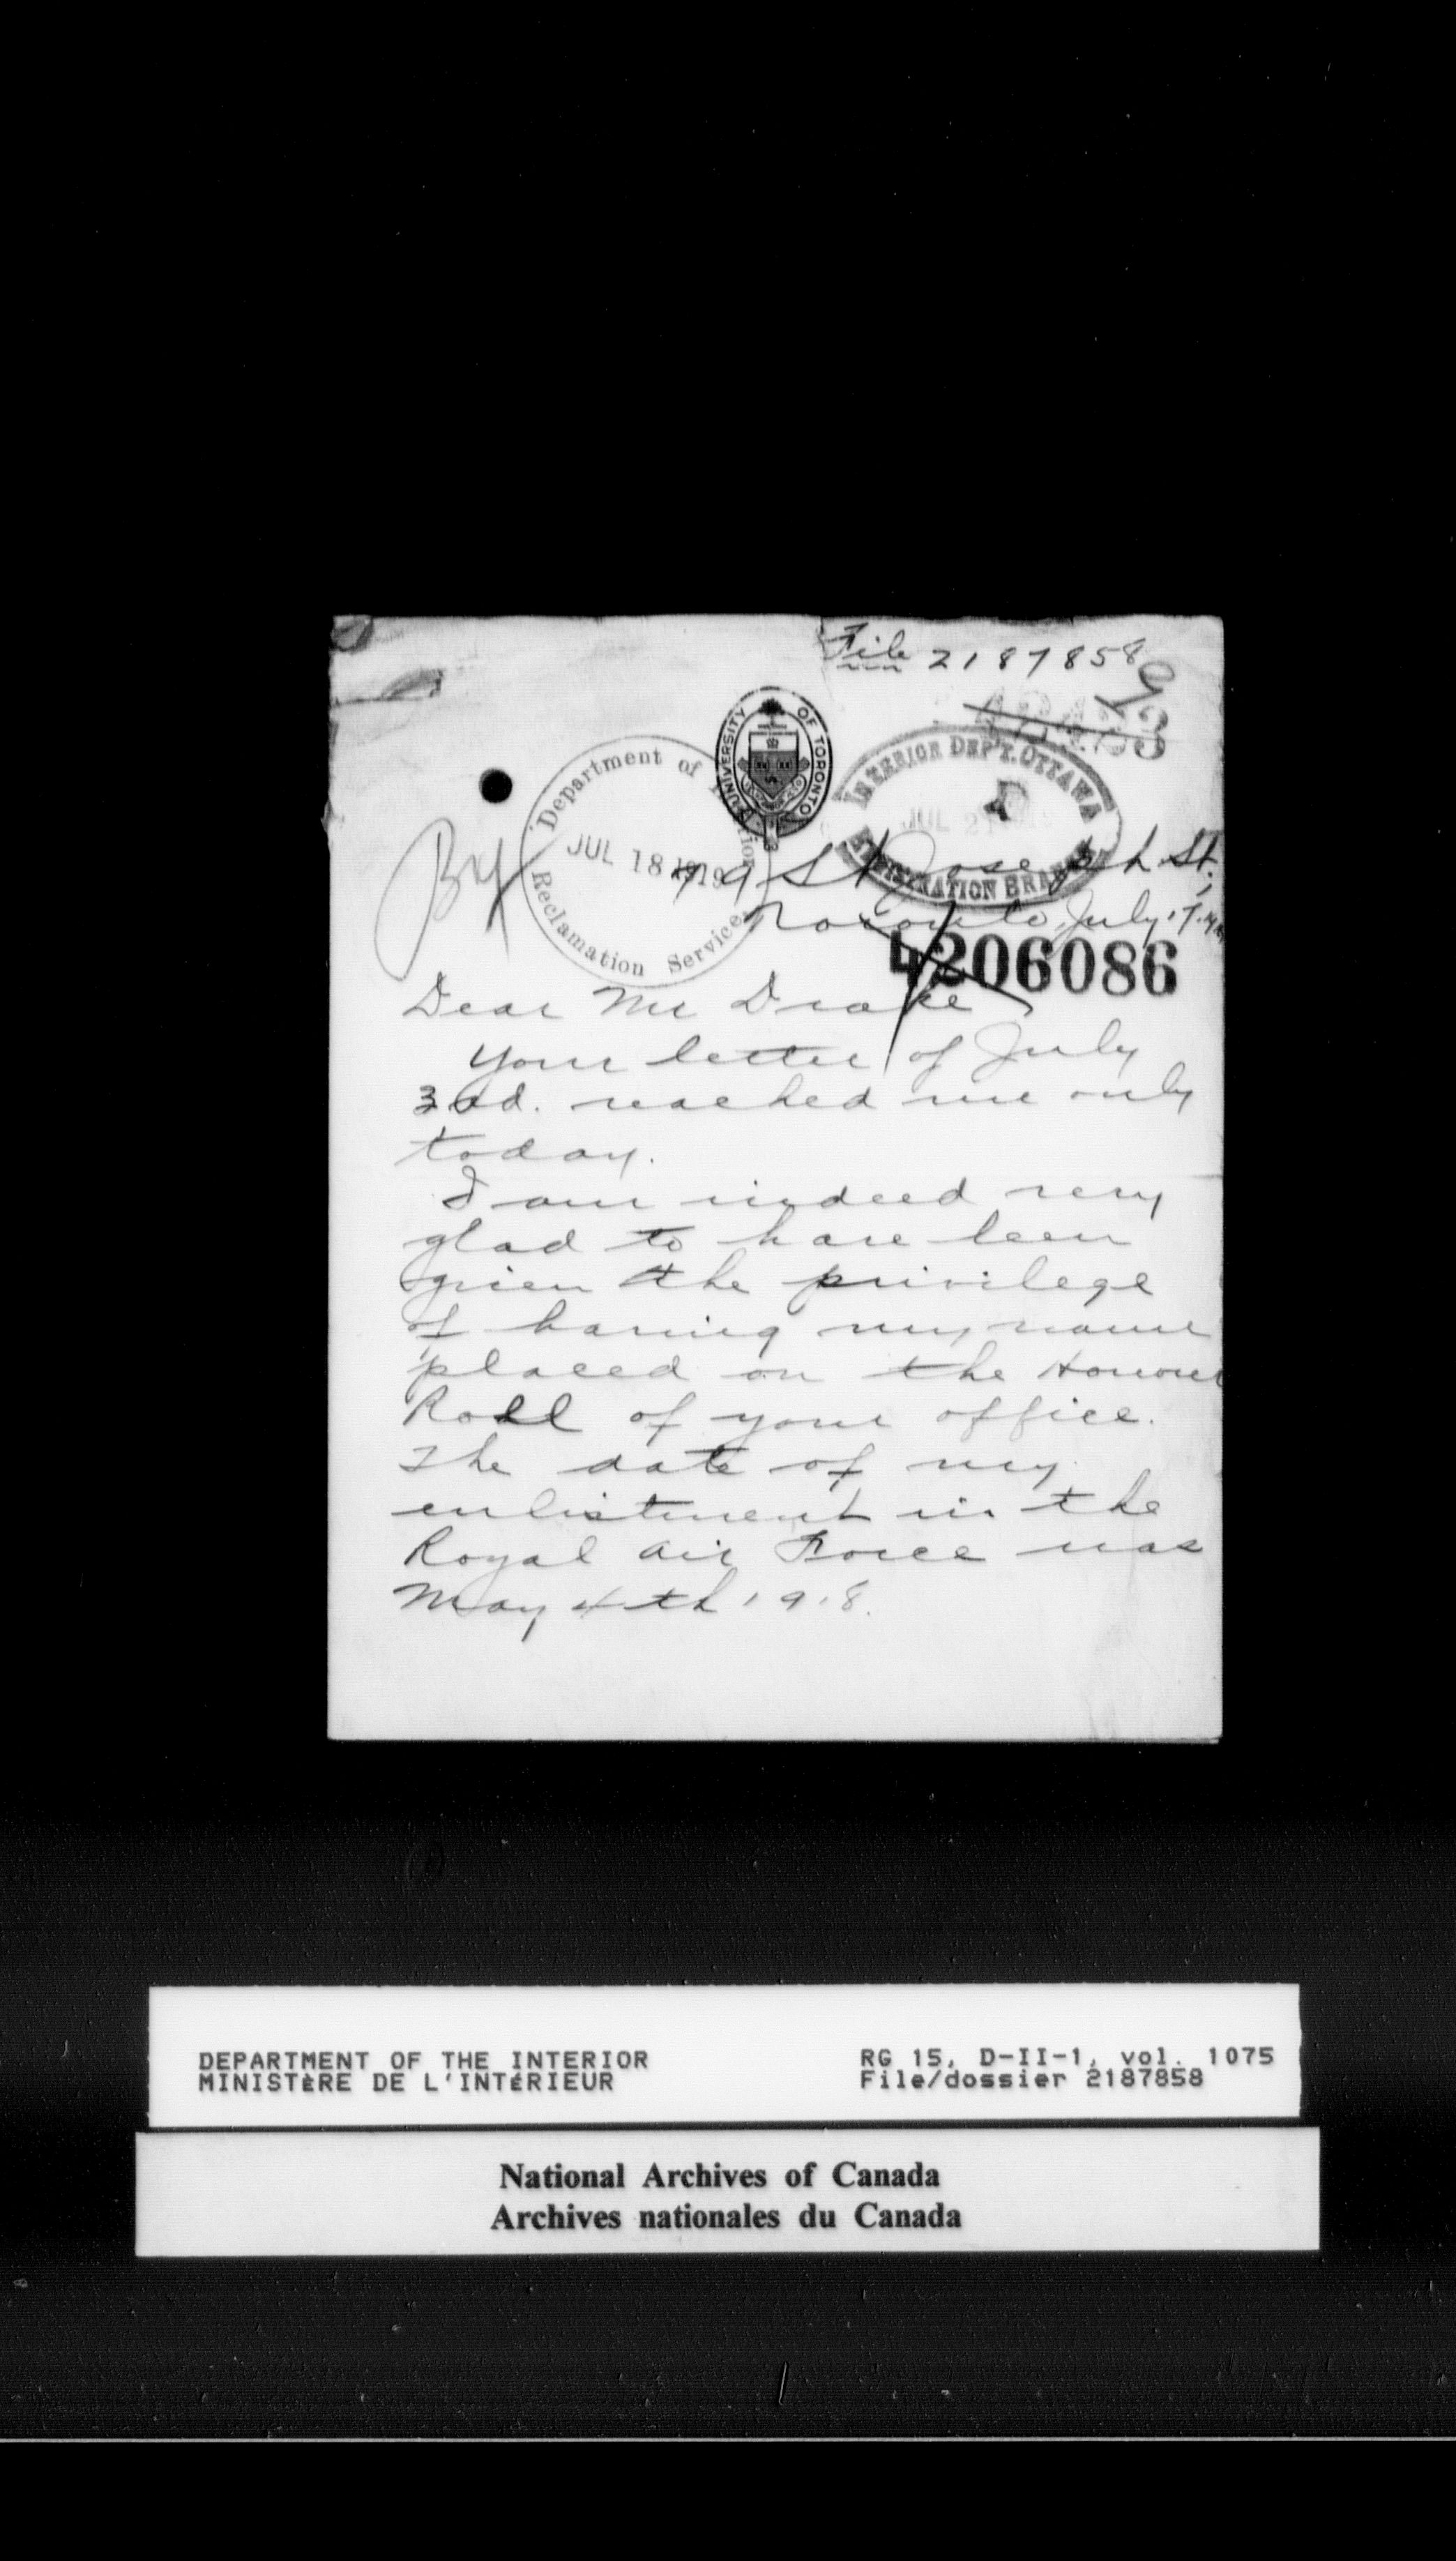 File 2187858
UNIVERSITY OF TORONTO
Department of
JUL 18 1919
Reclamation Service
INTERIOR DEP'T. OTTAWA
JUL 21
REGISTRATION BRANCH
By
79 St Joseph St.,
Toronto, July 17.
4206086
Dear Mr Drake
Your letter of July
3rd. reached me only
today.
I am indeed very
glad to have been
given the privilege
of having my name
placed on the Honour
Roll of your office.
The date of my
enlistment in the
Royal Air Force was
May 4th 1918.
DEPARTMENT OF THE INTERIOR
MINISTÈRE DE L'INTÉRIEUR
RG 15, D-II-1, vol. 1075
File/dossier 2187858
National Archives of Canada
Archives nationales du Canada